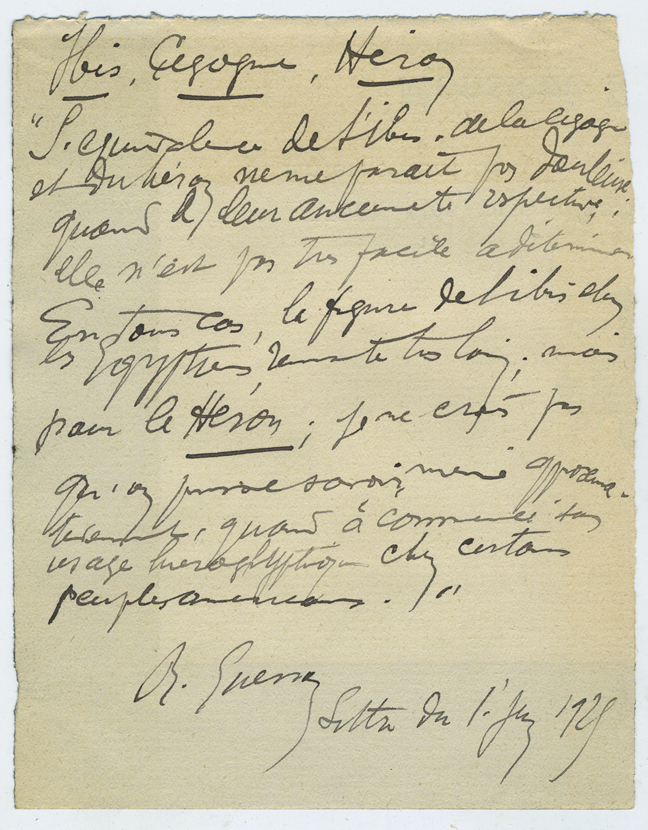 Ibis, Cigogne, Héron
"L'équivalence de l'ibis, de la cigogne
et du héron ne me paraît pas douteuse;
quand à leur ancienneté respective,
elle n'est pas très facile a déterminer
En tous cas, la figure de l'ibis chez
les Egyptiens, remonte très loin; mais
pour le Héron; je ne crois pas
qu'on puisse savoir, même approxima-
tivement, quand à commencé son
usage hieroglyphique chez certains
peuples américains."
R. Guénon
Lettre du 1º 1925